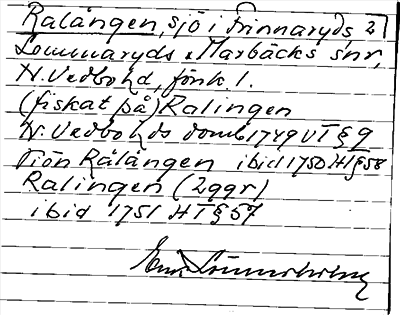 Ralången, sjö i Frinnaryds, 2
Lommaryds o. Marbäcks snr,
N. Vedbo hd, Jönk l.
(fiskat på) Ralingen
N. Vedbo hds domb 1749 VT § 9
Siön Rålången ibid 1750 HT § 58
Ralingen (2 ggr)
ibid 1751 HT § 57